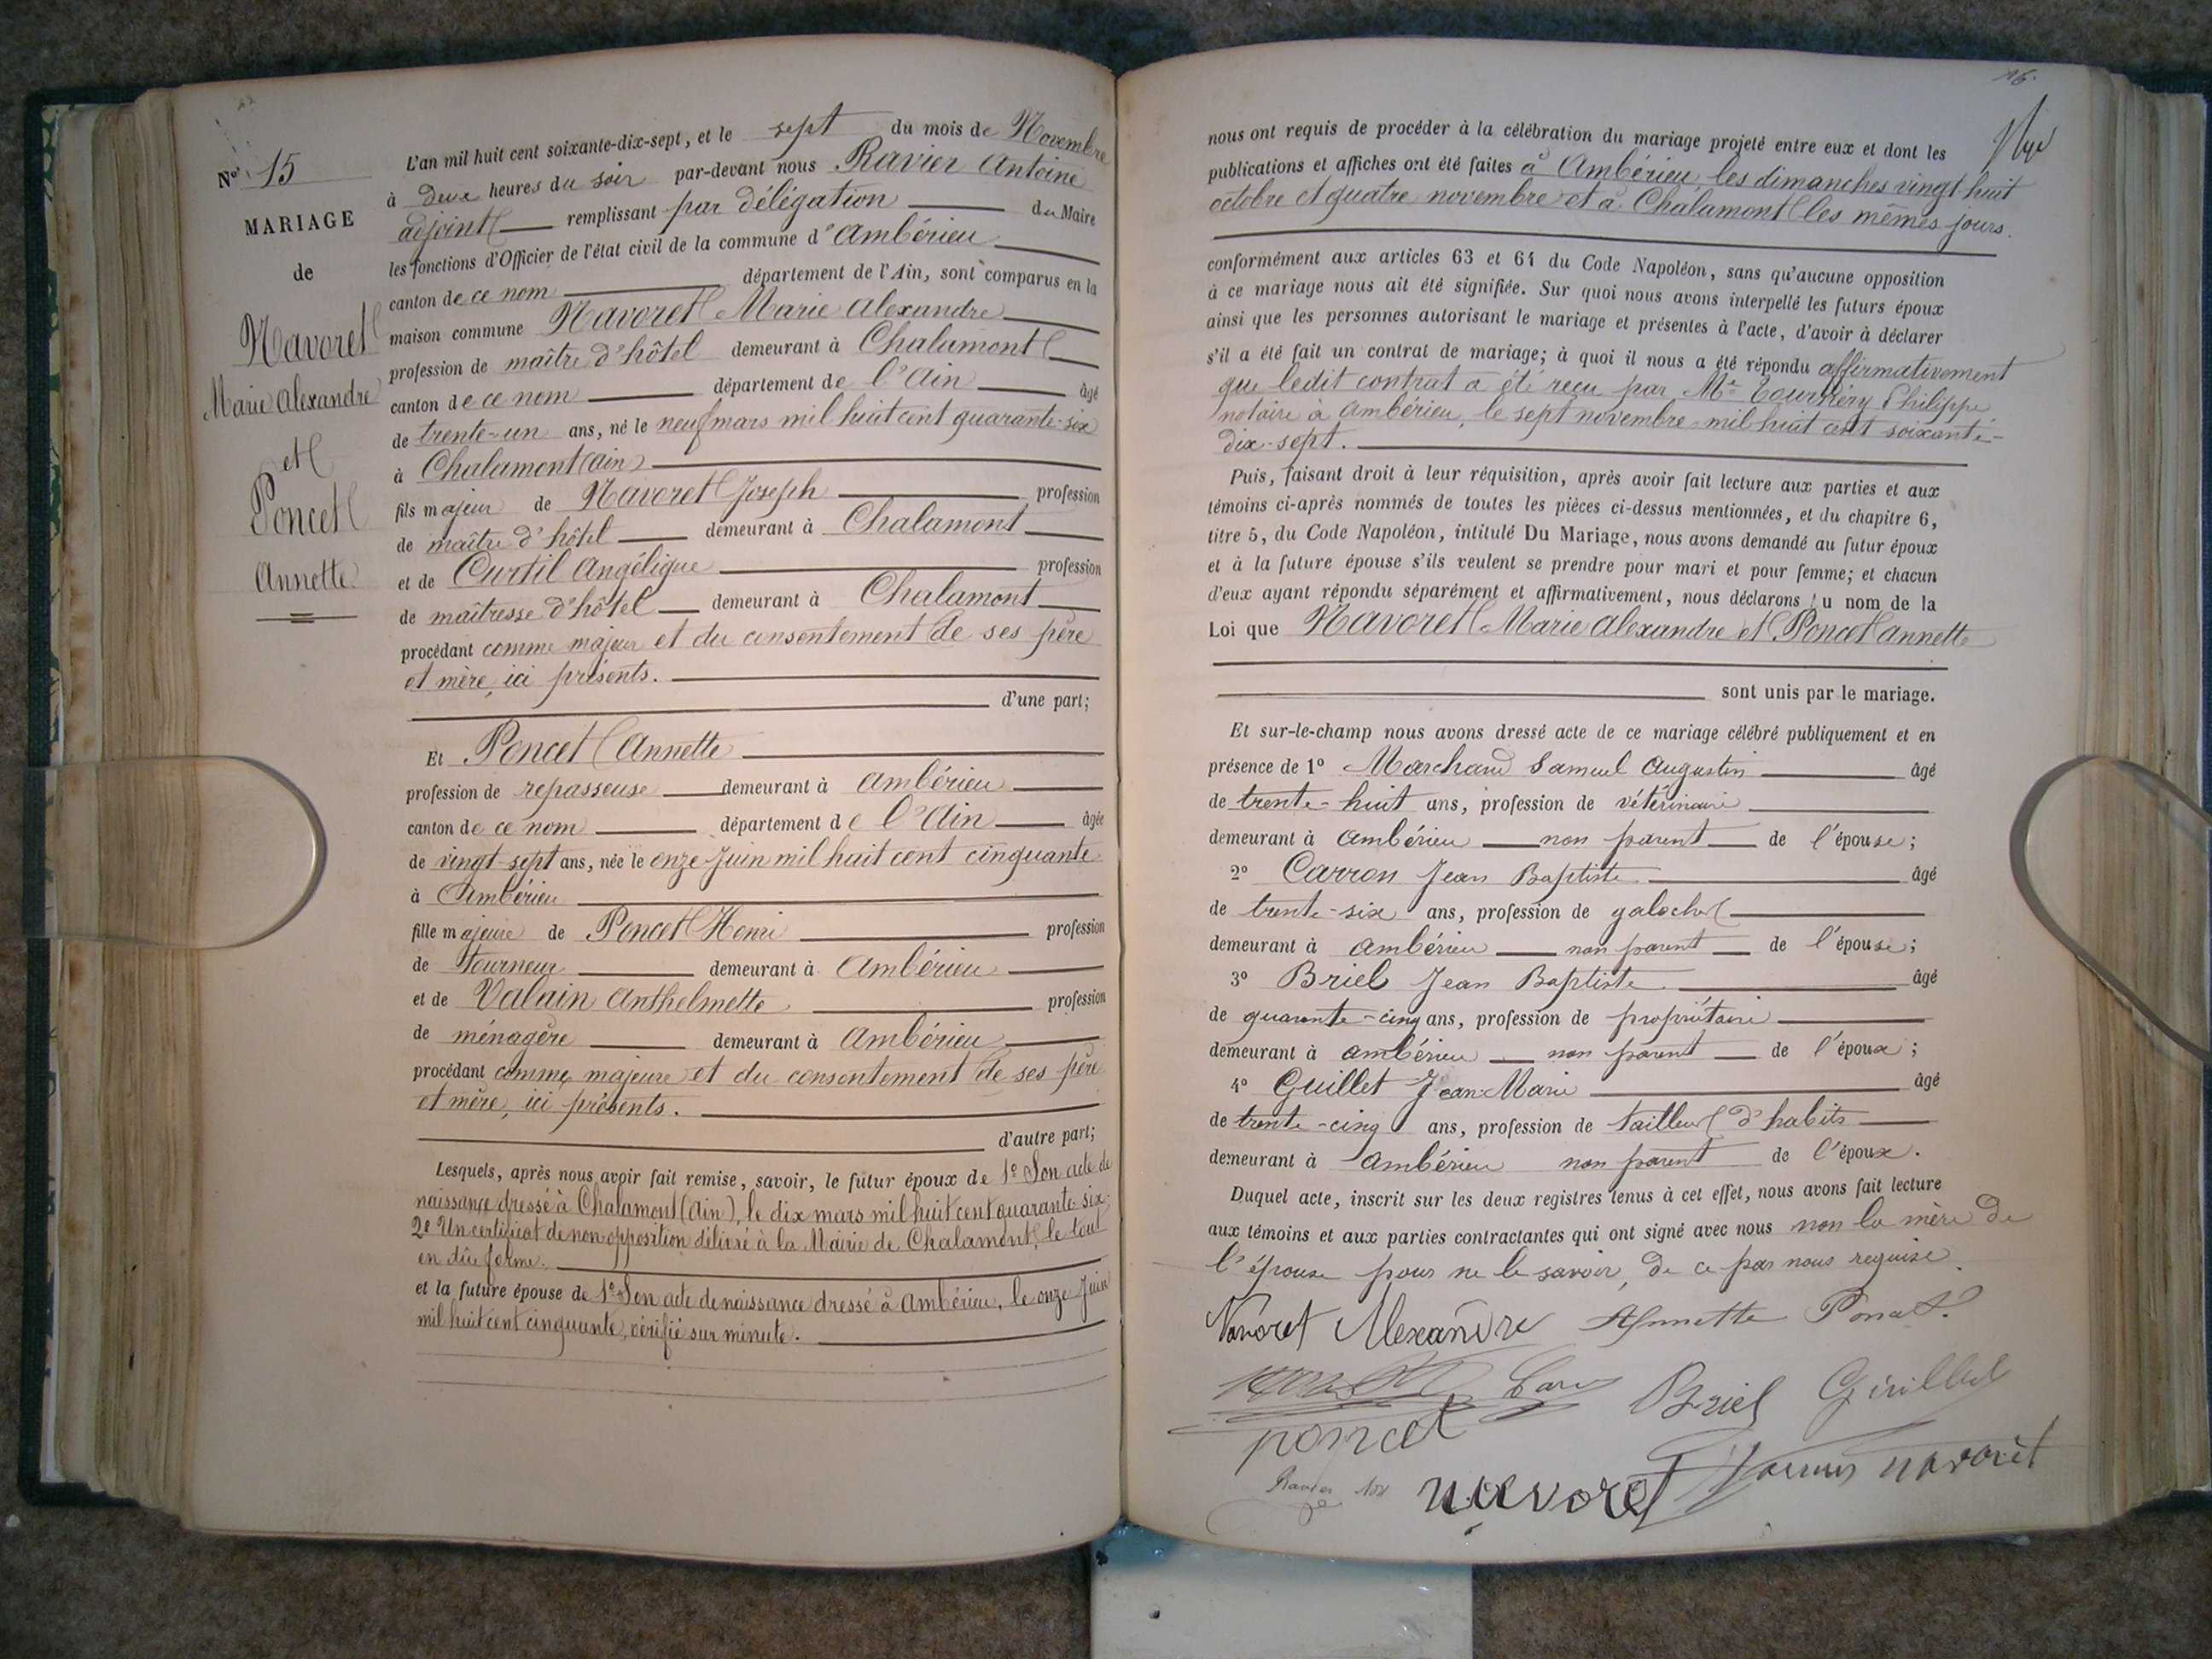 Nº 15
MARIAGE
de
Navoret
Marie Alexandre
et
Poncet
Annette
L'an mil huit cent soixante-dix-sept, et le sept du mois de Novembre
à deux heures du soir par-devant nous Ravier Antoine
adjoint remplissant par délégation du Maire
les fonctions d'Officier de l'état civil de la commune d'Ambérieu
canton de ce nom département de l'Ain, sont comparus en la
maison commune Navoret Marie Alexandre
profession de maître d'hôtel demeurant à Chalamont
canton de ce nom département de l'Ain âgé
de trente-un ans, né le neuf mars mil huit cent quarante-six
à Chalamont (Ain)
fils majeur de Navoret Joseph profession
de maître d'hôtel demeurant à Chalamont
et de Curtil Angélique profession
de maîtresse d'hôtel demeurant à Chalamont
procédant comme majeur et du consentement de ses père
et mère, ici présents.
d'une part;
Et Poncet Annette
profession de repasseuse demeurant à Ambérieu
canton de ce nom département de l'Ain âgée
de vingt-sept ans, née le onze Juin mil huit cent cinquante
à Ambérieu
fille majeure de Poncet Henri profession
de tourneur demeurant à Ambérieu
et de Valain Anthelmette profession
de ménagère demeurant à Ambérieu
procédant comme majeure et du consentement de ses père
et mère, ici présents.
d'autre part;
Lesquels, après nous avoir fait remise, savoir, le futur époux de 1º Son acte de
naissance dressé à Chalamont (Ain), le dix mars mil huit cent quarante-six.
2º Un certificat de non opposition délivré à la Mairie de Chalamont, le tout
en dûe forme.
et la future épouse de 1º Son acte de naissance dressé à Ambérieu, le onze Juin
mil huit cent cinquante, vérifié sur minute.
16.
nous ont requis de procéder à la célébration du mariage projeté entre eux et dont les
publications et affiches ont été faites à Ambérieu, les dimanches vingt huit
octobre et quatre novembre et à Chalamont les mêmes jours.
conformément aux articles 63 et 64 du Code Napoléon, sans qu'aucune opposition
à ce mariage nous ait été signifiée. Sur quoi nous avons interpellé les futurs époux
ainsi que les personnes autorisant le mariage et présentes à l'acte, d'avoir à déclarer
s'il a été fait un contrat de mariage; à quoi il nous a été répondu affirmativement
que ledit contrat a été reçu par Me Philippe
notaire à Ambérieu, le sept novembre mil huit cent soixante-
dix-sept.
Puis, faisant droit à leur réquisition, après avoir fait lecture aux parties et aux
témoins ci-après nommés de toutes les pièces ci-dessus mentionnées, et du chapitre 6,
titre 5, du Code Napoléon, intitulé Du Mariage, nous avons demandé au futur époux
et à la future épouse s'ils veulent se prendre pour mari et pour femme; et chacun
d'eux ayant répondu séparément et affirmativement, nous déclarons au nom de la
Loi que Navoret Marie Alexandre et Poncet Annette
sont unis par le mariage.
Et sur-le-champ nous avons dressé acte de ce mariage célébré publiquement et en
présence de 1º Marchand Samuel Augustin âgé
de trente-huit ans, profession de vétérinaire
demeurant à Ambérieu non parent de l'épouse;
2º Carron Jean Baptiste âgé
de trente-six ans, profession de galocher
demeurant à Ambérieu non parent de l'épouse;
3º Briel Jean Baptiste âgé
de quarante-cinq ans, profession de propriétaire
demeurant à Ambérieu non parent de l'époux;
4º Guillet Jean-Marie âgé
de trente-cinq ans, profession de tailleur d'habits
demeurant à Ambérieu non parent de l'époux.
Duquel acte, inscrit sur les deux registres tenus à cet effet, nous avons fait lecture
aux témoins et aux parties contractantes qui ont signé avec nous non la mère de
l'épouse pour ne le savoir, de ce par nous requise.
Navoret Alexandre Annette Poncet
Briel Guillet
poncet
Ravier navoret navorèt